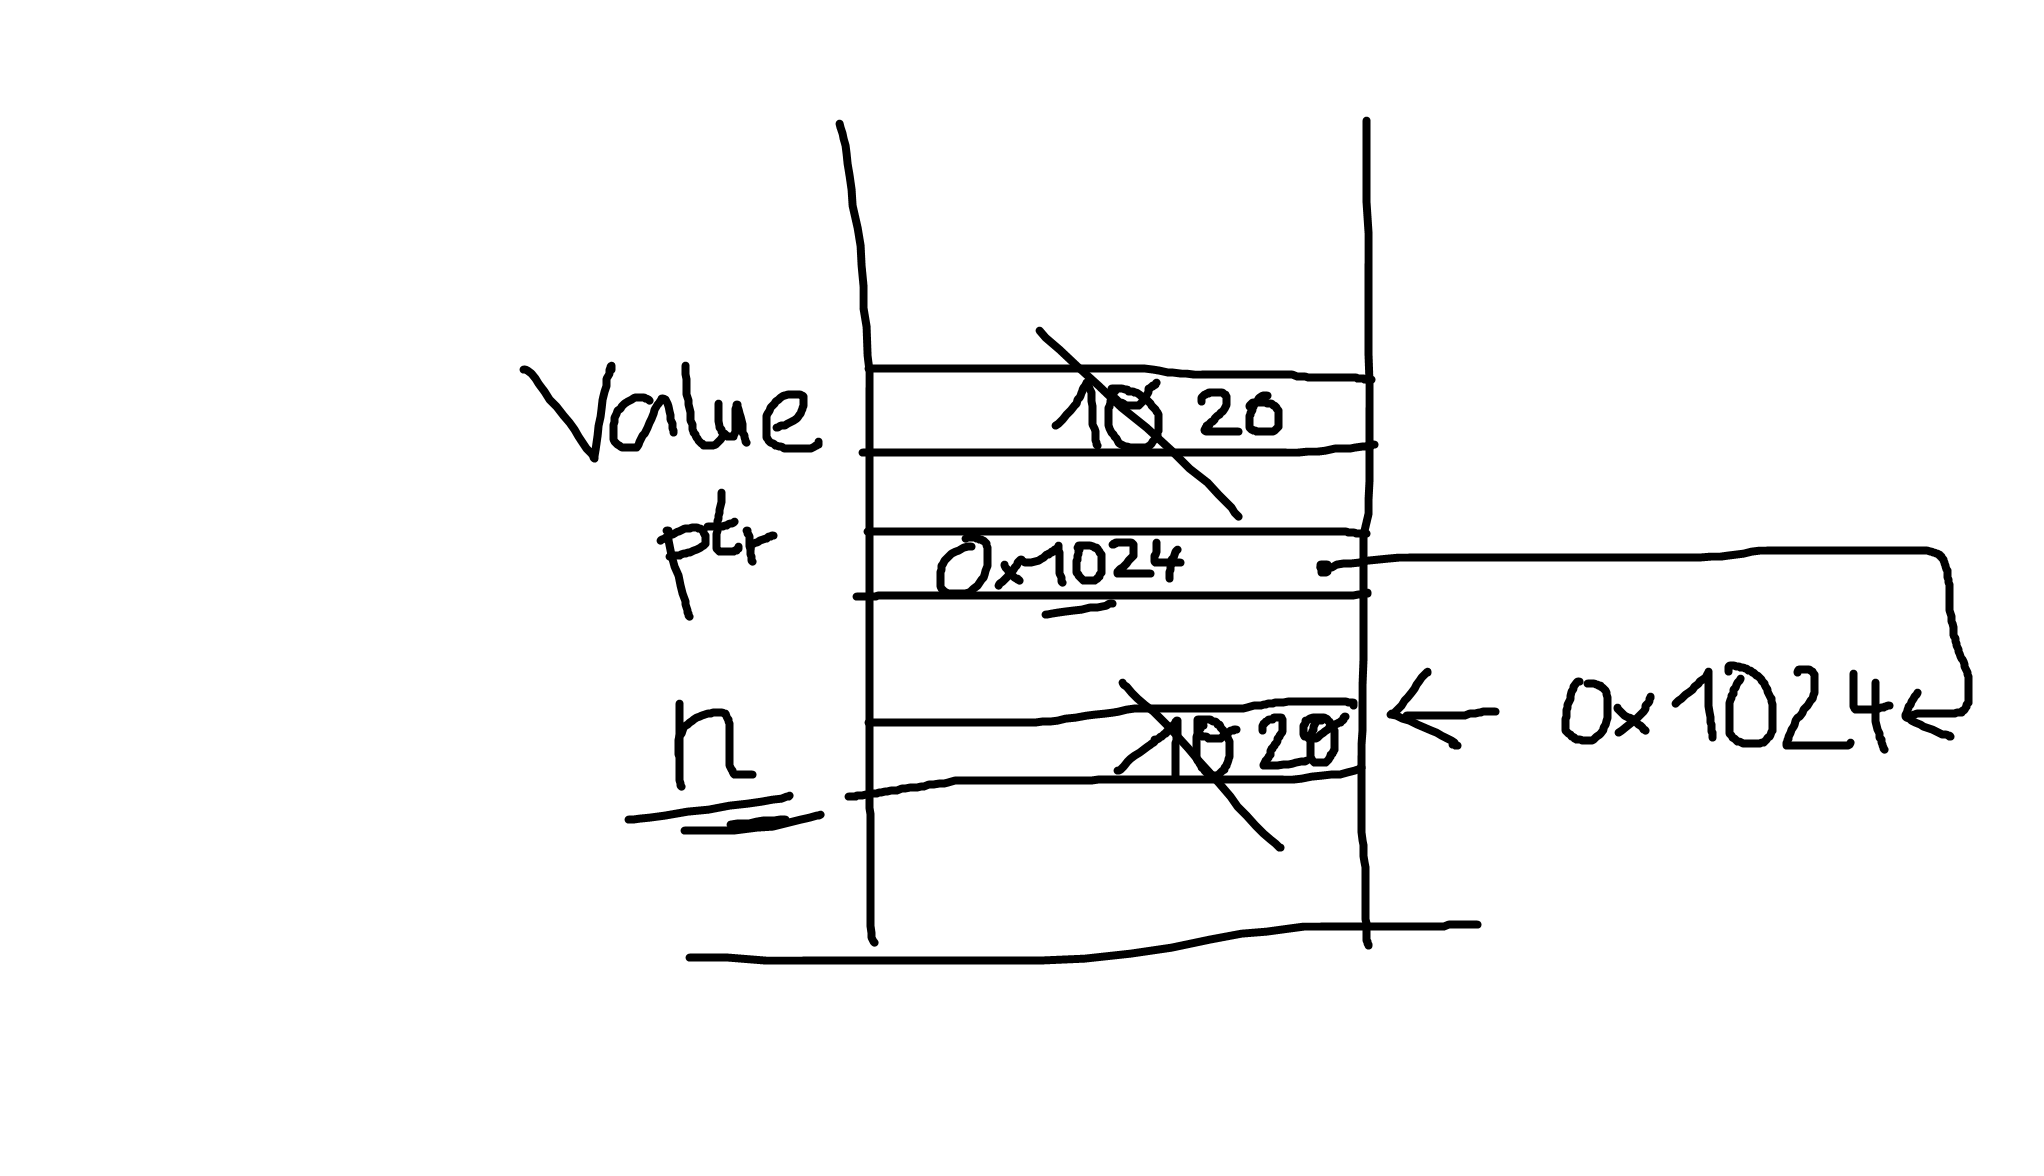 Value 10 20
ptr 0x1024
n 10 20 0x1024